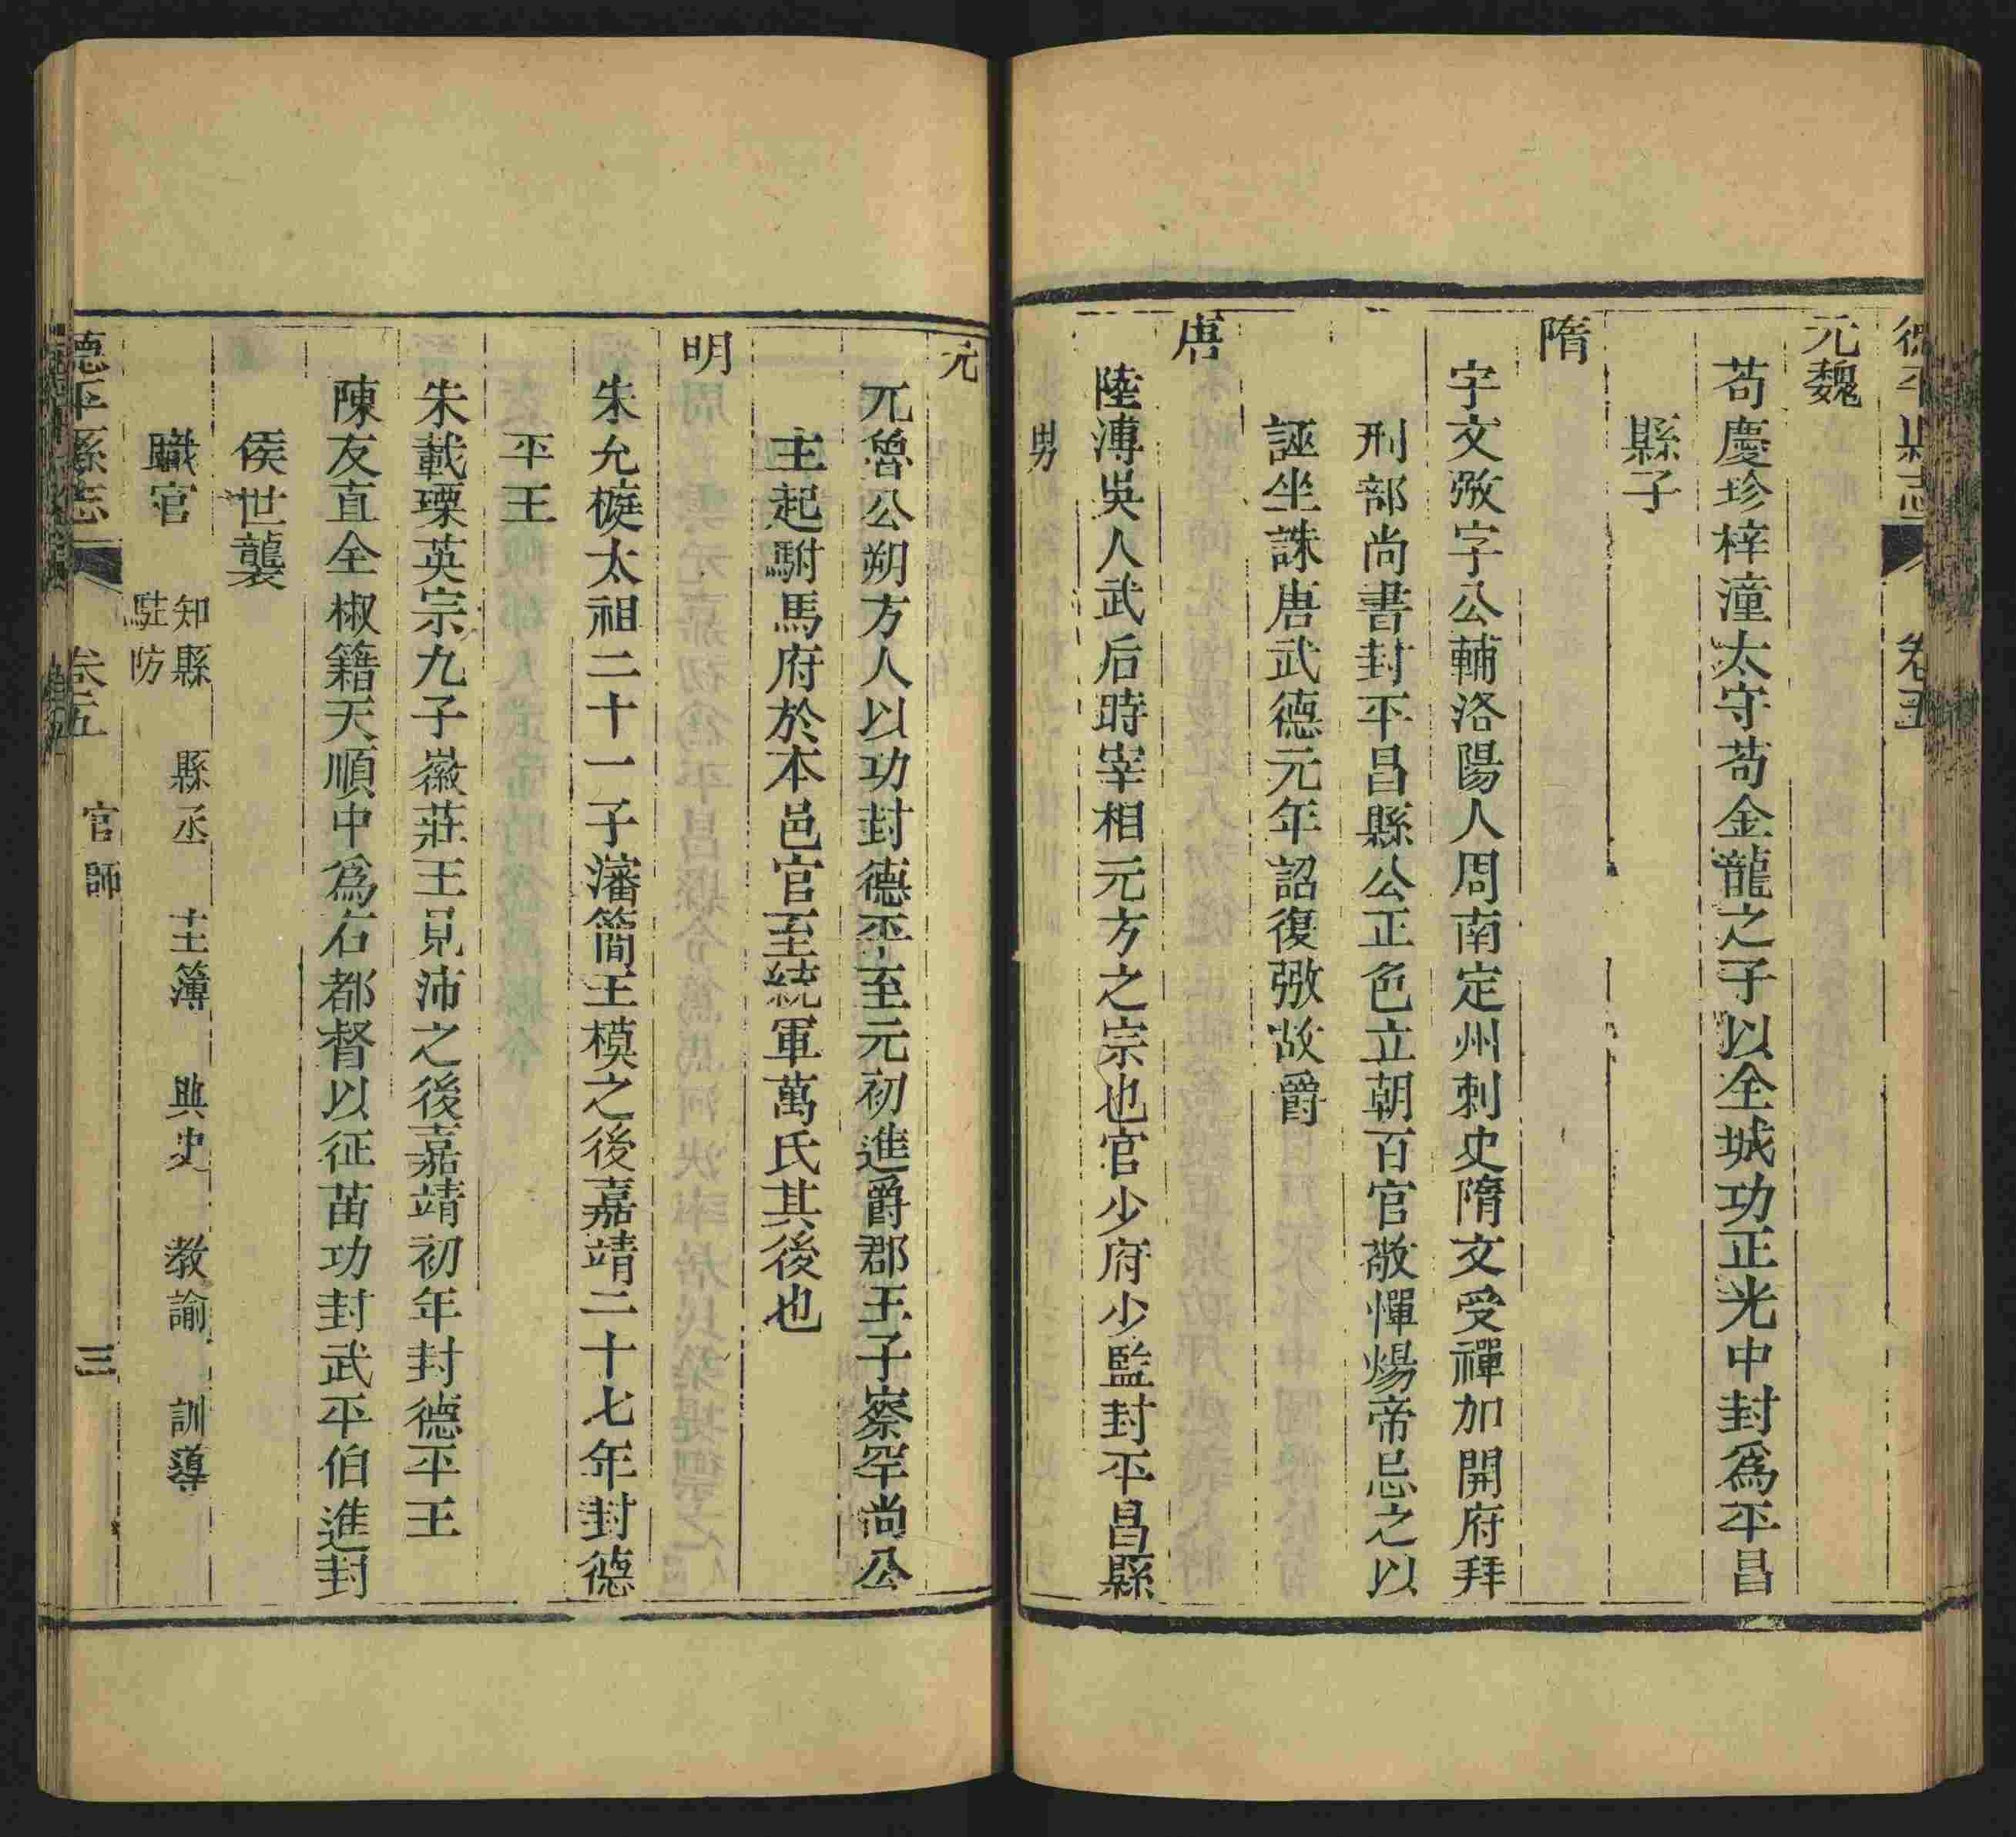 德平縣志 卷五
元魏
苟慶珍梓潼太守苟金龍之子以全城功正光中封爲平昌
縣子
隋
宇文㢸字公輔洛陽人周南定州刺史隋文受禪加開府拜
刑部尚書封平昌縣公正色立朝百官敬憚煬帝忌之以
誣坐誅唐武德元年詔復㢸故爵
唐
陸溥吳人武后時宰相元方之宗也官少府少監封平昌縣
男
元
兀魯公朔方人以功封德平至元初進爵郡王子察罕尚公
主起駙馬府於本邑官至統軍萬氏其後也
明
朱允榳太祖二十一子瀋簡王模之後嘉靖二十七年封德
平王
朱載㻎英宗九子徽莊王見沛之後嘉靖初年封德平王
陳友直全椒籍天順中爲右都督以征苗功封武平伯進封
侯世襲
職官 知縣 縣丞 主簿 典史 教諭 訓導
駐防
德平縣志 卷五 官師 三